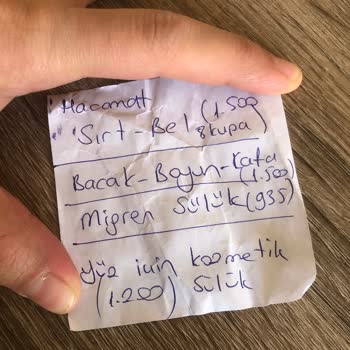 Hacamatt
Sırt-Bel (1.500
8kupa)
Bacak-Boyun-Kafa
(1.500)
Migren Sülük (935)
Yüz için kozmetik
(1.200) Sülük